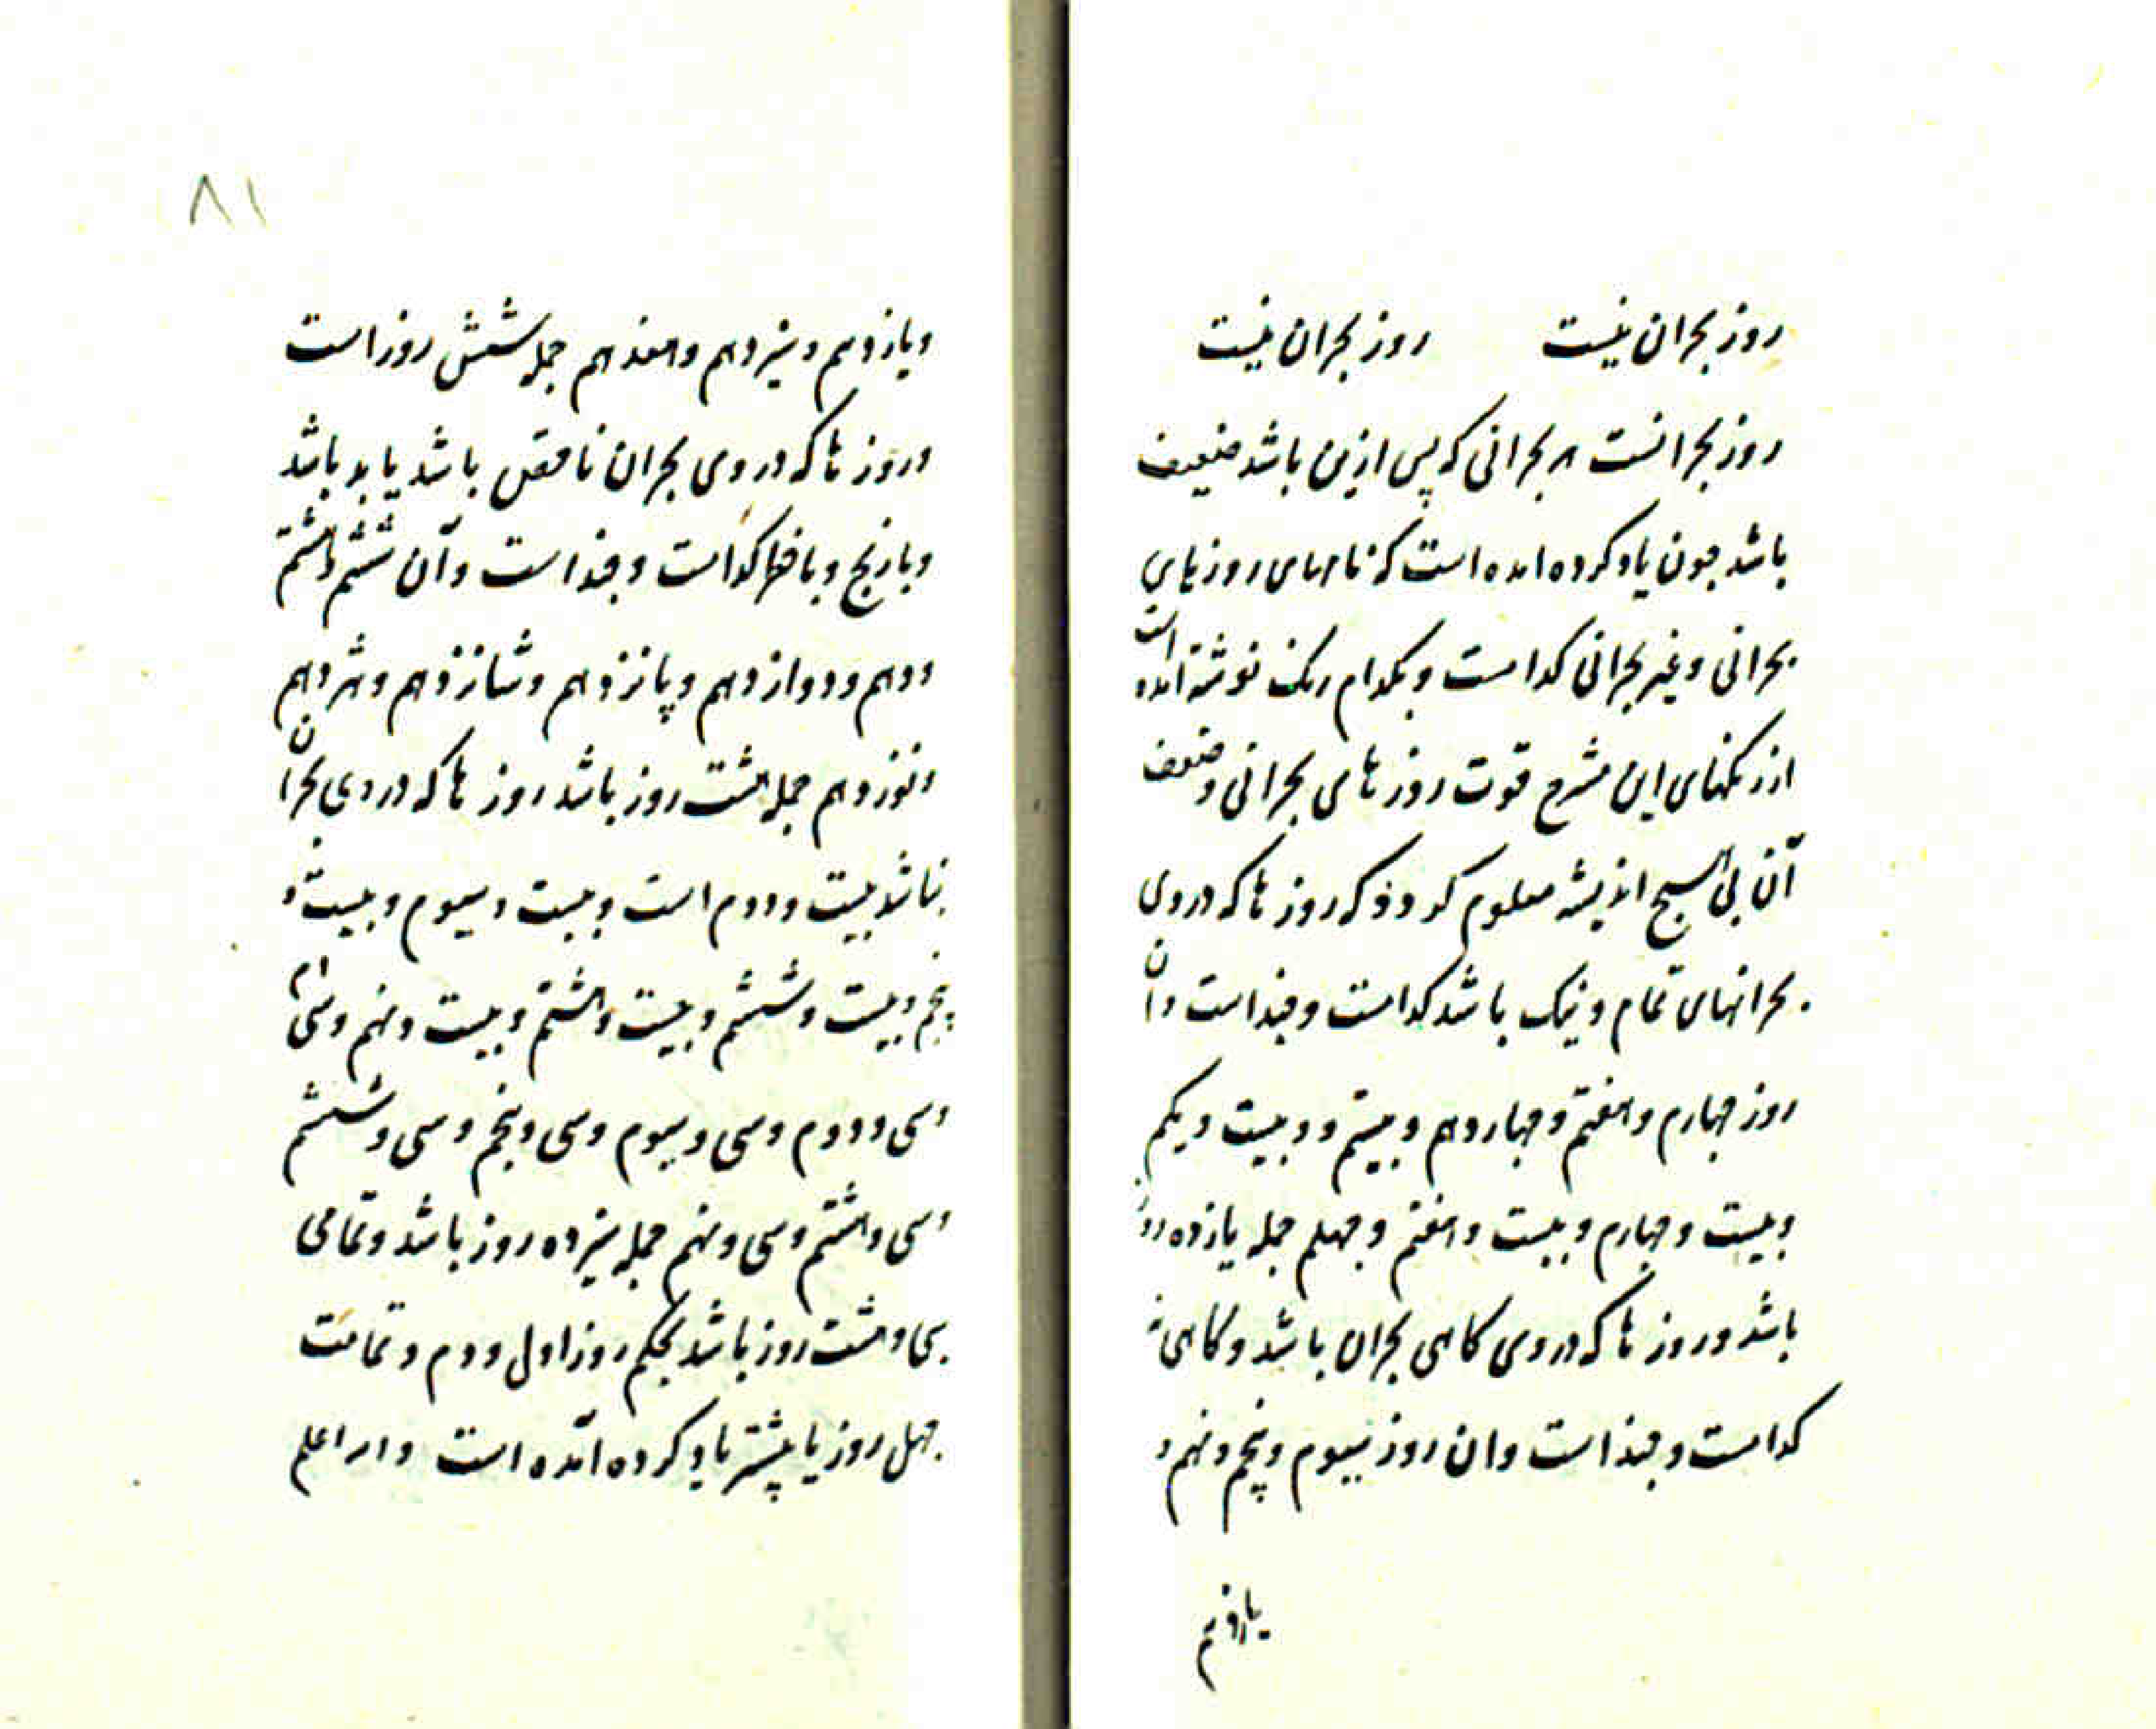 روز بحران نیست روز بحران نیست
روز بحرانست هر بحرانی که پس ازین باشد ضعیف
باشد جون یاد کرده امده است که نامهای روزهای
بحرانی و غیر بحرانی کدامست و بکدام رنک نوشته امده است
از رنکهای این مشرح قوت روزهای بحرانی و ضعف
آن بی هیچ اندیشه معلوم کردد که روزها که در وی
بحرانهای تمام و نیک باشد کدامست و جند است و ان
روز جهارم و هفتم و جهاردهم و بیستم و بیست و یکم
و بیست و جهارم و بیست و هفتم و جهلم جمله یازده روز
باشد و روزها که در وی کاهی بحران باشد و کاهی نه
کدامست و جند است وان روز سیوم و پنجم و نهم و
یازدهم
۸۱
و یازدهم و سیزدهم و هفدهم جمله شش روز است
و روزها که در وی بحران ناقص باشد یا بد باشد
و با رنج و با خطر کدامست و جند است و آن ششم و هشتم
و دهم و دوازدهم و پانزدهم و شانزدهم و هژدهم
و نوزدهم جمله هشت روز باشد روزها که در وی بحران
نباشد بیست و دوم است و بیست و سیوم و بیست و
پنجم و بیست و ششم و بیست و هشتم و بیست و نهم و سی ام
و سی و دوم و سی و سیوم و سی و پنجم و سی و ششم
و سی و هشتم و سی و نهم جمله سیزده روز باشد و تمامی
سی و هشت روز باشد بحکم روز اول و دوم و تمامت
جهل روز یا پیشتر یاد کرده آمده است و الله اعلم